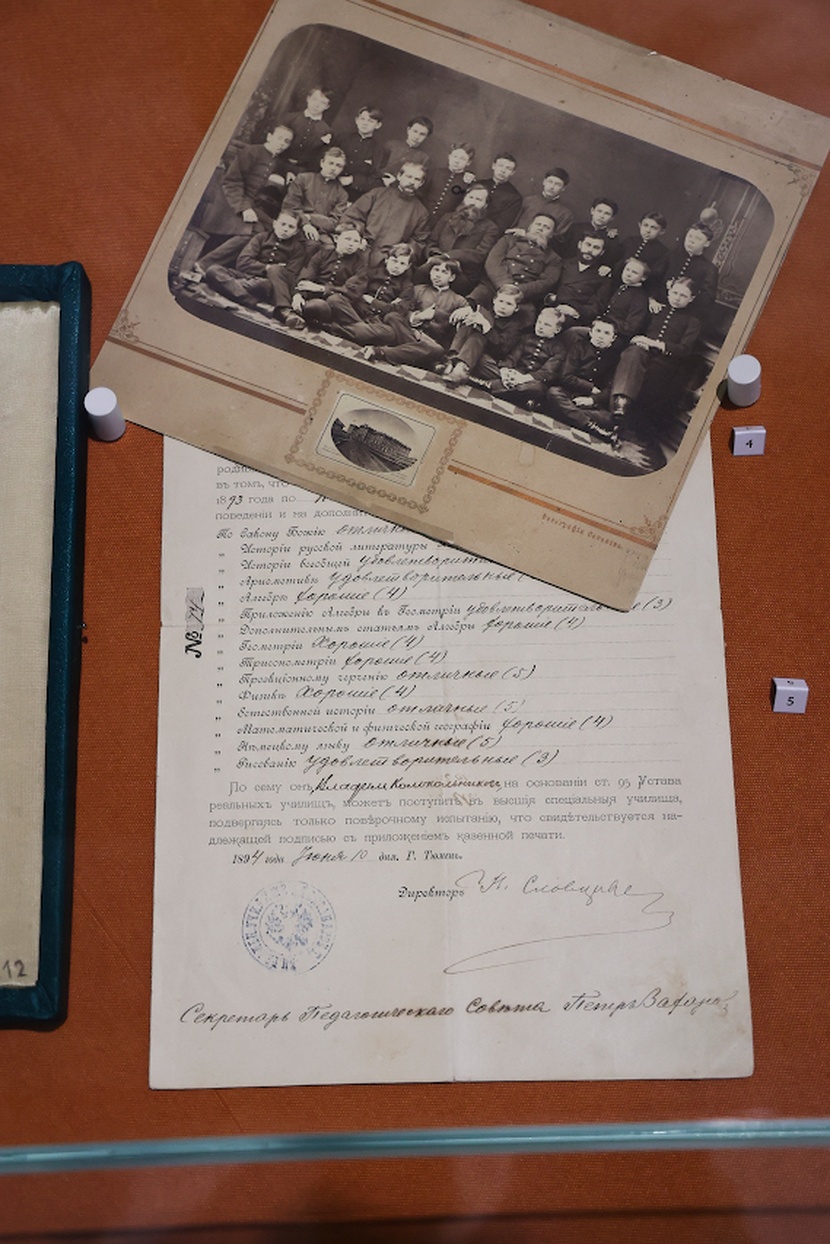 4
родив
въ томъ, что
1893 года по
поведеніи и на дополнит
По Закону Божію отлично
" Исторіи русской литературы
" Исторіи всеобщей удовлетворител
" Ариѳметикѣ удовлетворительные (
" Алгебрѣ хорошіе (4)
" Приложенію Алгебры къ Геометріи удовлетворительные (3)
" Дополнительнымъ статьямъ Алгебры хорошіе (4)
" Геометріи Хорошіе (4)
" Тригонометріи хорошіе (4)
" Проекціонному черченію отличные (5)
" Физикѣ Хорошіе (4)
" Естественной исторіи отличные (5)
" Математической и физической географіи хорошіе (4)
" Нѣмецкому языку отличные (5)
" Рисованію удовлетворительные (3)
№
5
По сему онъ, Владим Колокольников, на основаніи ст. 95 Устава
реальныхъ училищъ, можетъ поступить въ высшія спеціальныя училища,
подвергаясь только повѣрочному испытанію, что свидѣтельствуется над-
длежащей подписью съ приложеніемъ казенной печати.
1894 года Іюня 10 дня. Г. Тюмень.
Директоръ Словцовъ
Секретарь Педагогическаго Совѣта Петръ
12